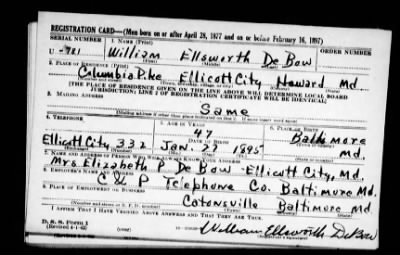 REGISTRATION CARD—(Men born on or after April 28, 1877 and on or before February 16, 1897)
SERIAL NUMBER 1. NAME (Print) ORDER NUMBER
U-981 William Ellsworth De Bow
(First) (Middle) (Last)
2. PLACE OF RESIDENCE (Print)
Columbia Pike Ellicott City Howard Md.
(THE PLACE OF RESIDENCE GIVEN ON THE LINE ABOVE WILL DETERMINE LOCAL BOARD
JURISDICTION; LINE 2 OF REGISTRATION CERTIFICATE WILL BE IDENTICAL)
3. MAILING ADDRESS
Same
4. TELEPHONE 5. AGE IN YEARS 6. PLACE OF BIRTH
47 Baltimore
Ellicott City 332 DATE OF BIRTH Jan. 27 1895 Md.
7. NAME AND ADDRESS OF PERSON WHO WILL ALWAYS KNOW YOUR ADDRESS
Mrs Elizabeth P De Bow - Ellicott City, Md.
8. EMPLOYER'S NAME AND ADDRESS
C & P Telephone Co. Baltimore Md.
9. PLACE OF EMPLOYMENT OR BUSINESS
Catonsville Baltimore Md.
I AFFIRM THAT I HAVE VERIFIED ABOVE ANSWERS AND THAT THEY ARE TRUE.
D. S. S. Form 1
(Revised 4-1-42)
William Ellsworth DeBow